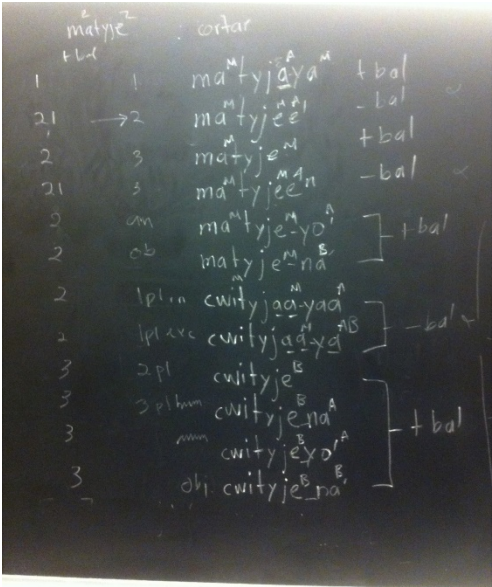 matyje² : cortar
+bal
1 1 maᴹtyjaᴬyaᴹ +bal
21 →2 maᴹtyjeᴹeᴬ' -bal
2 3 maᴹtyjeᴹ +bal
21 3 maᴹtyjeᴹeᴬ -bal
2 an maᴹtyjeᴹ-yo'ᴬ
2 ob matyjeᴹ-naᴮ' +bal
2 1pl in cwityjaaᴹ-yaaᴬ
2 1pl exc cwityjaaᴹ-yaᴬᴮ -bal
3 2pl cwityjeᴮ
3 3pl hum cwityjeᴮnaᴬ
3 cwityjeᴮyo'ᴬ +bal
3 obj cwityjeᴮ-naᴮ'